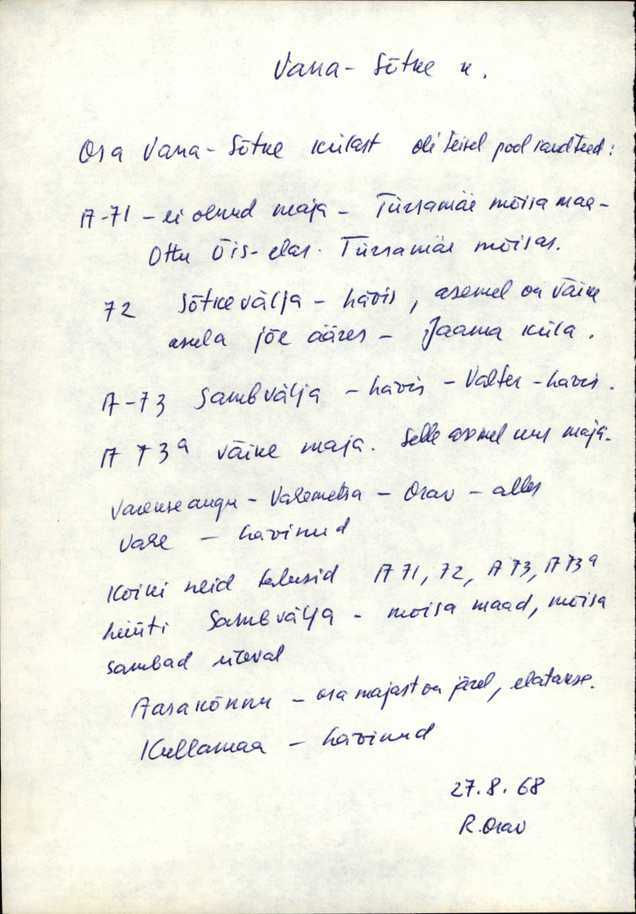 Vana-Sõtke k.
Osa Vana-Sõtke külast oli teisel pool raudteed:
A-71 – ei olnud maja – Türsamäe mõisa maa –
Ottu Õis- elas. Türsamäe mõisas.
72 Sõtkevälja – hävis, asemel on väike
asula jõe ääres – Jaama küla.
A-73 Sambvälja – hävis – Valter – hävis.
A 73a väike maja. Selle asemel uus maja.
Varemetsa – Orav – alles
Vare – hävinud
Kõiki neid talusid A 71, 72, A 73, A 73a
hüüti Sambvälja – mõisa maad, mõisa
sambad üleval
Aasakõnnu – osa majast on järel, elatakse.
Kullamaa – hävinud
27.8.68
R. Orav